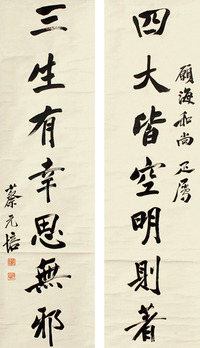 願海和尚正屬
四大皆空明則著
三生有幸思無邪
蔡元培